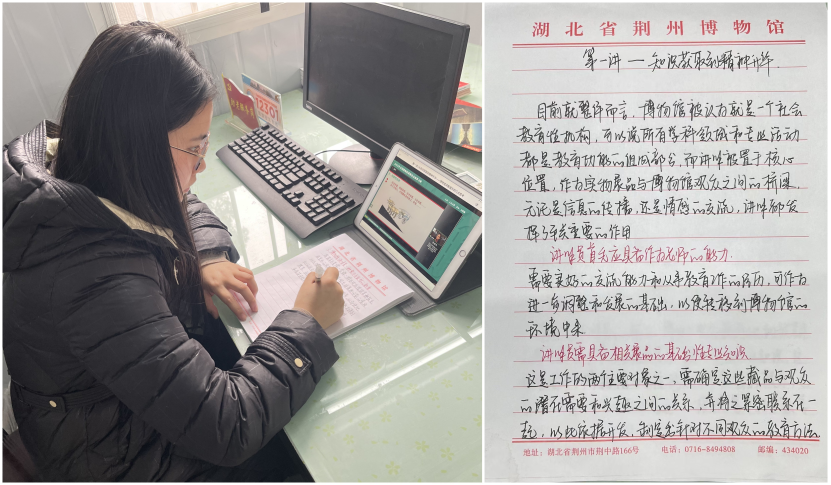 12301
湖北省荆州博物馆
第一讲——知识获取到精神升华
目前就整体而言，博物馆被认为就是一个社会
教育性机构，可以说所有学科领域和专业活动
都是教育功能的组成部分，而讲解被置于核心
位置，作为实物展品与博物馆观众之间的桥梁，
无论是信息的传播，还是情感的交流，讲解都发
挥了至关重要的作用
讲解员首先应具备作为老师的能力
需要良好的交流能力和从事教育工作的经历，可作为
进一步调整和发展的基础，以便转移到博物馆的
环境中来
讲解员需具备相关展品的基础性专业知识
这是工作的两个主要对象之一，需确定这些藏品与观众
的潜在需要和兴趣之间的关系，并将之紧密联系在一
起，以此依据开发、制定针对不同观众的教育方法。
地址：湖北省荆州市荆中路166号 电话：0716-8494808 邮编：434020